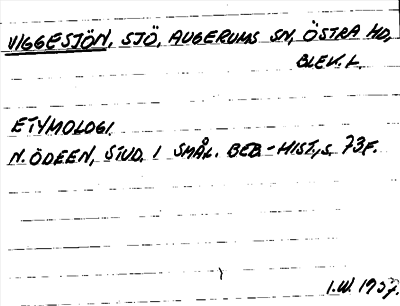 VIGGESJÖN, SJÖ, AUGERUMS SN, ÖSTRA HD,
BLEK. L.
ETYMOLOGI.
N. ÖDEEN, STUD. I SMÅL. BEB-HIST., S. 73F.
I.W. 1957.